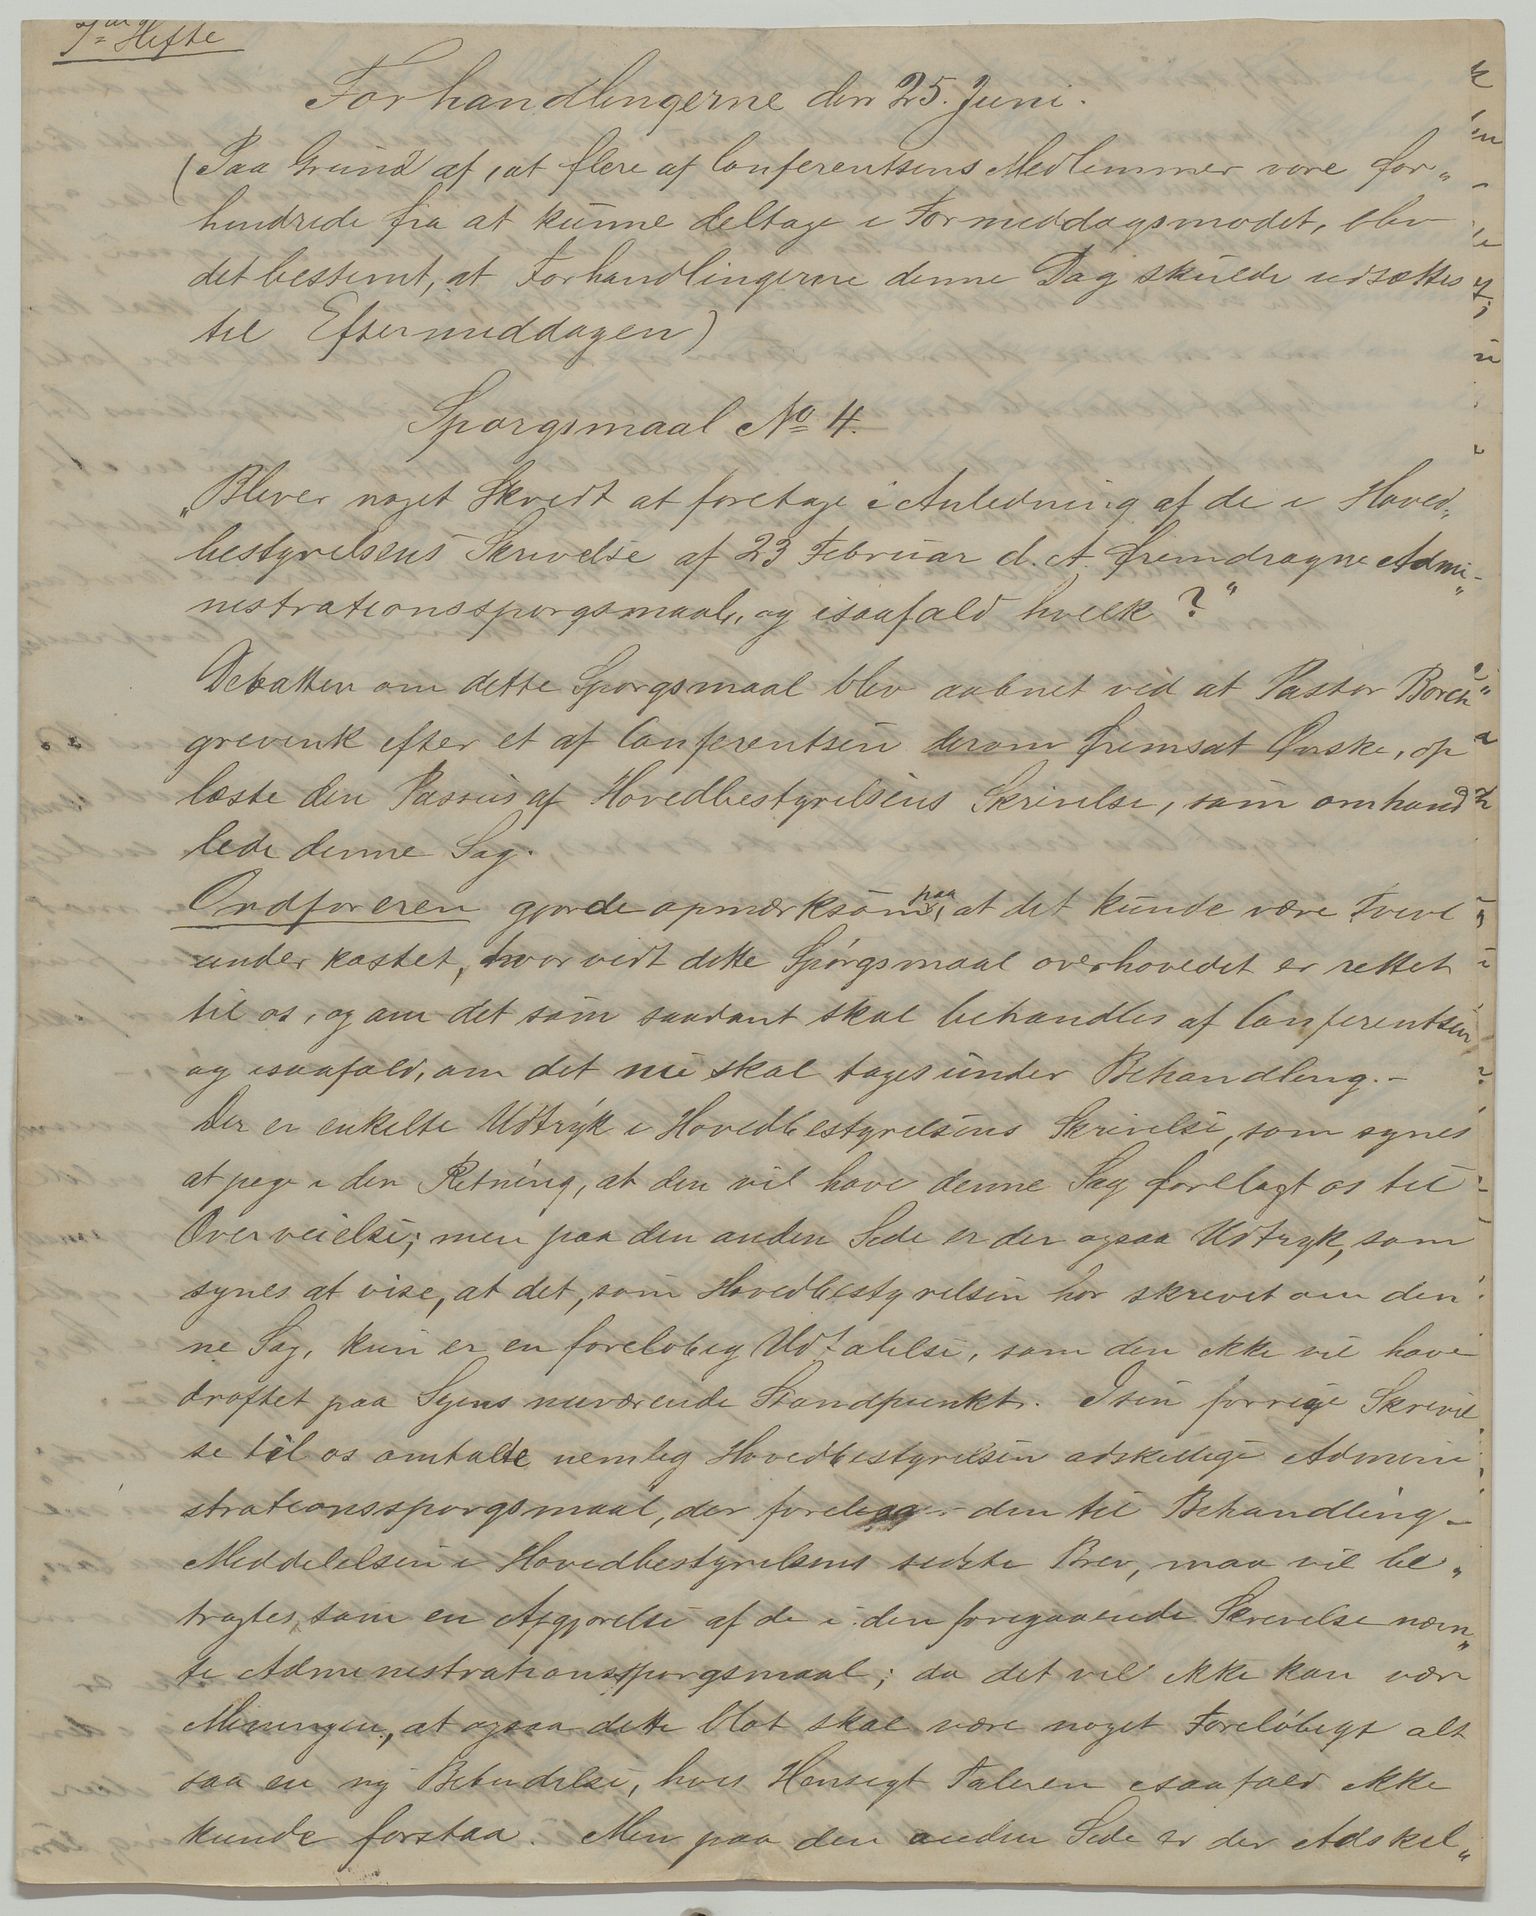 Hefte
Forhandlingerne den 25. Juni.
(Paa Grund af, at flere af Conferentsens Medlemmer vare for„
hindrede fra at kunne deltage i Formiddagsmødet, blev
det bestemt, at Forhandlingerne denne Dag skulde udsættes
til Eftermiddagen)
Spørgsmaal No 4.
„Bliver noget Skridt at foretage i Anledning af de i Hoved„
bestyrelsens Skrivelse af 23 Februar d. A. fremdragne Admi„
nistrationsspørgsmaal, og isaafald hvilk?"
Debatten om dette Spørgsmaal blev aabnet ved at Pastor Borch„
grevink efter et af Conferentsen derom fremsat Ønske, op
læste den Passus af Hovedbestyrelsens Skrivelse, som omhand
lede denne Sag.
Ordføreren gjorde opmærksom paa, at det kunde være Tvivl
underkastet, hvorvidt dette Spørgsmaal overhovedet er rettet
til os, og om det som saadant skal behandles af Conferentsen
og isaafald, om det nu skal tages under Behandling. -
Der er enkelte Udtryk i Hovedbestyrelsens Skrivelse, som synes
at pege i den Retning, at den vil have denne Sag forelagt os til
Overveielse; men paa den anden Side er der ogsaa Udtryk, som
synes at vise, at det, som Hovedbestyrelsen har skrevet om den
ne Sag, kun er en foreløbig Udtalelse, som den ikke vil have
drøftet paa Sagens nuværende Standpunkt. I sin forrige Skrivel
se til os omtalte nemlig Hovedbestyrelsen adskillige Admini
strationsspørgsmaal, der forelaa den til Behandling.
Meddelelsen i Hovedbestyrelsens sidste Brev, maa vel be„
tragtes som en Afgjørelse af de i den foregaaende Skrivelse nævn„
te Administrationsspørgsmaal; da det vel ikke kan være
Meningen, at ogsaa dette blot skal være noget Foreløbigt alt
saa en ny Bebudelse, hvis Hensigt Taleren isaafald ikke
kunde forstaa. Men paa den anden Side er der Adskil„